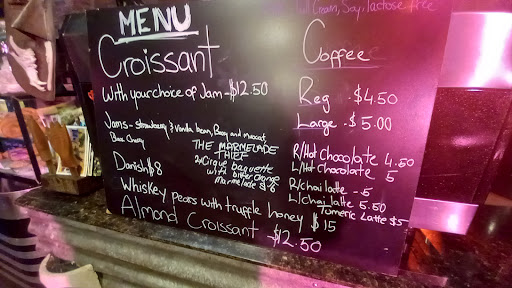 MENU
Cream, Soy, lactose free
Croissant
With your choice of Jam - $12.50
Jams - strawberry & vanilla bean, Berry and
Black Cherry
THE MARMELADE
THIEF
baguette
with bitter orange
Marmelade $6
Danish $8
Whiskey pears with truffle honey $15
Almond Croissant
- $12.50
Coffee
Reg - $4.50
Large - $5.00
R/Hot Chocolate 4.50
L/Hot Chocolate 5
R/chai latte - 5
L/chai latte 5.50
Tumeric Latte $5